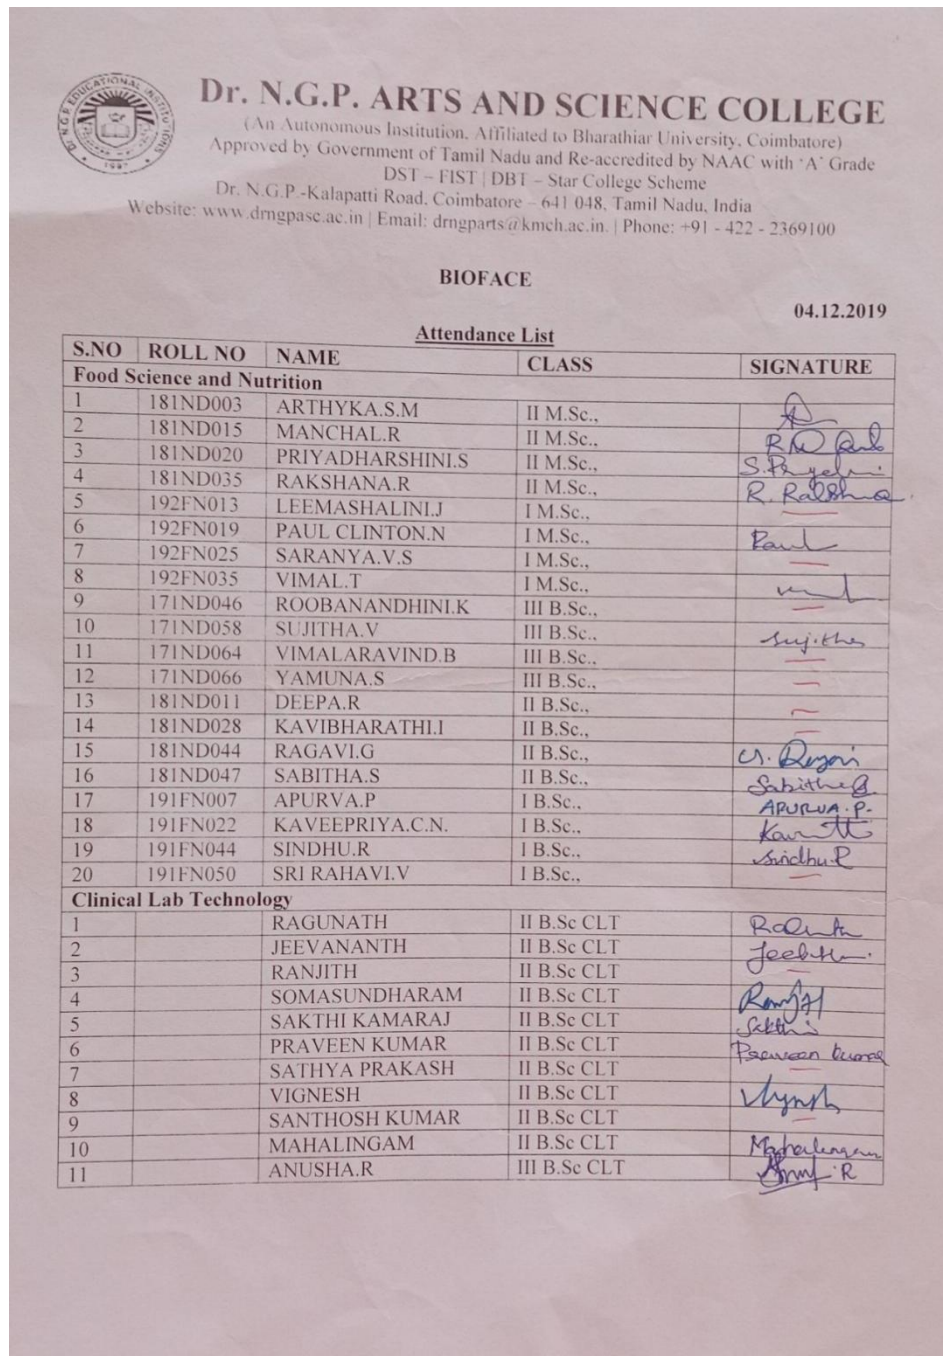 Dr. N.G.P. ARTS AND SCIENCE COLLEGE
(An Autonomous Institution, Affiliated to Bharathiar University, Coimbatore)
Approved by Government of Tamil Nadu and Re-accredited by NAAC with 'A' Grade
DST – FIST | DBT – Star College Scheme
Dr. N.G.P.-Kalapatti Road, Coimbatore – 641 048, Tamil Nadu, India
Website: www.drngpasc.ac.in | Email: drngparts@kmch.ac.in. | Phone: +91 - 422 - 2369100
Dr. N.G.P. EDUCATIONAL INSTITUTIONS
1997
BIOFACE
04.12.2019
Attendance List
S.NO ROLL NO NAME CLASS SIGNATURE
Food Science and Nutrition
1 181ND003 ARTHYKA.S.M II M.Sc.,
2 181ND015 MANCHAL.R II M.Sc.,
3 181ND020 PRIYADHARSHINI.S II M.Sc.,
4 181ND035 RAKSHANA.R II M.Sc.,
5 192FN013 LEEMASHALINI.J I M.Sc.,
6 192FN019 PAUL CLINTON.N I M.Sc., Paul
7 192FN025 SARANYA.V.S I M.Sc.,
8 192FN035 VIMAL.T I M.Sc.,
9 171ND046 ROOBANANDHINI.K III B.Sc.,
10 171ND058 SUJITHA.V III B.Sc., Sujitha
11 171ND064 VIMALARAVIND.B III B.Sc.,
12 171ND066 YAMUNA.S III B.Sc.,
13 181ND011 DEEPA.R II B.Sc.,
14 181ND028 KAVIBHARATHI.I II B.Sc.,
15 181ND044 RAGAVI.G II B.Sc.,
16 181ND047 SABITHA.S II B.Sc.,
17 191FN007 APURVA.P I B.Sc., APURVA.P.
18 191FN022 KAVEEPRIYA.C.N. I B.Sc.,
19 191FN044 SINDHU.R I B.Sc., Sindhu.R
20 191FN050 SRI RAHAVI.V I B.Sc.,
Clinical Lab Technology
1 RAGUNATH II B.Sc CLT
2 JEEVANANTH II B.Sc CLT
3 RANJITH II B.Sc CLT
4 SOMASUNDHARAM II B.Sc CLT
5 SAKTHI KAMARAJ II B.Sc CLT Sakthi
6 PRAVEEN KUMAR II B.Sc CLT Praveen kumar
7 SATHYA PRAKASH II B.Sc CLT
8 VIGNESH II B.Sc CLT
9 SANTHOSH KUMAR II B.Sc CLT
10 MAHALINGAM II B.Sc CLT Mahalingam
11 ANUSHA.R III B.Sc CLT